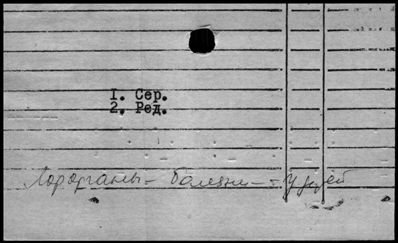 1. Сер.
2. Ред.
Лорорганы – болезни – у детей